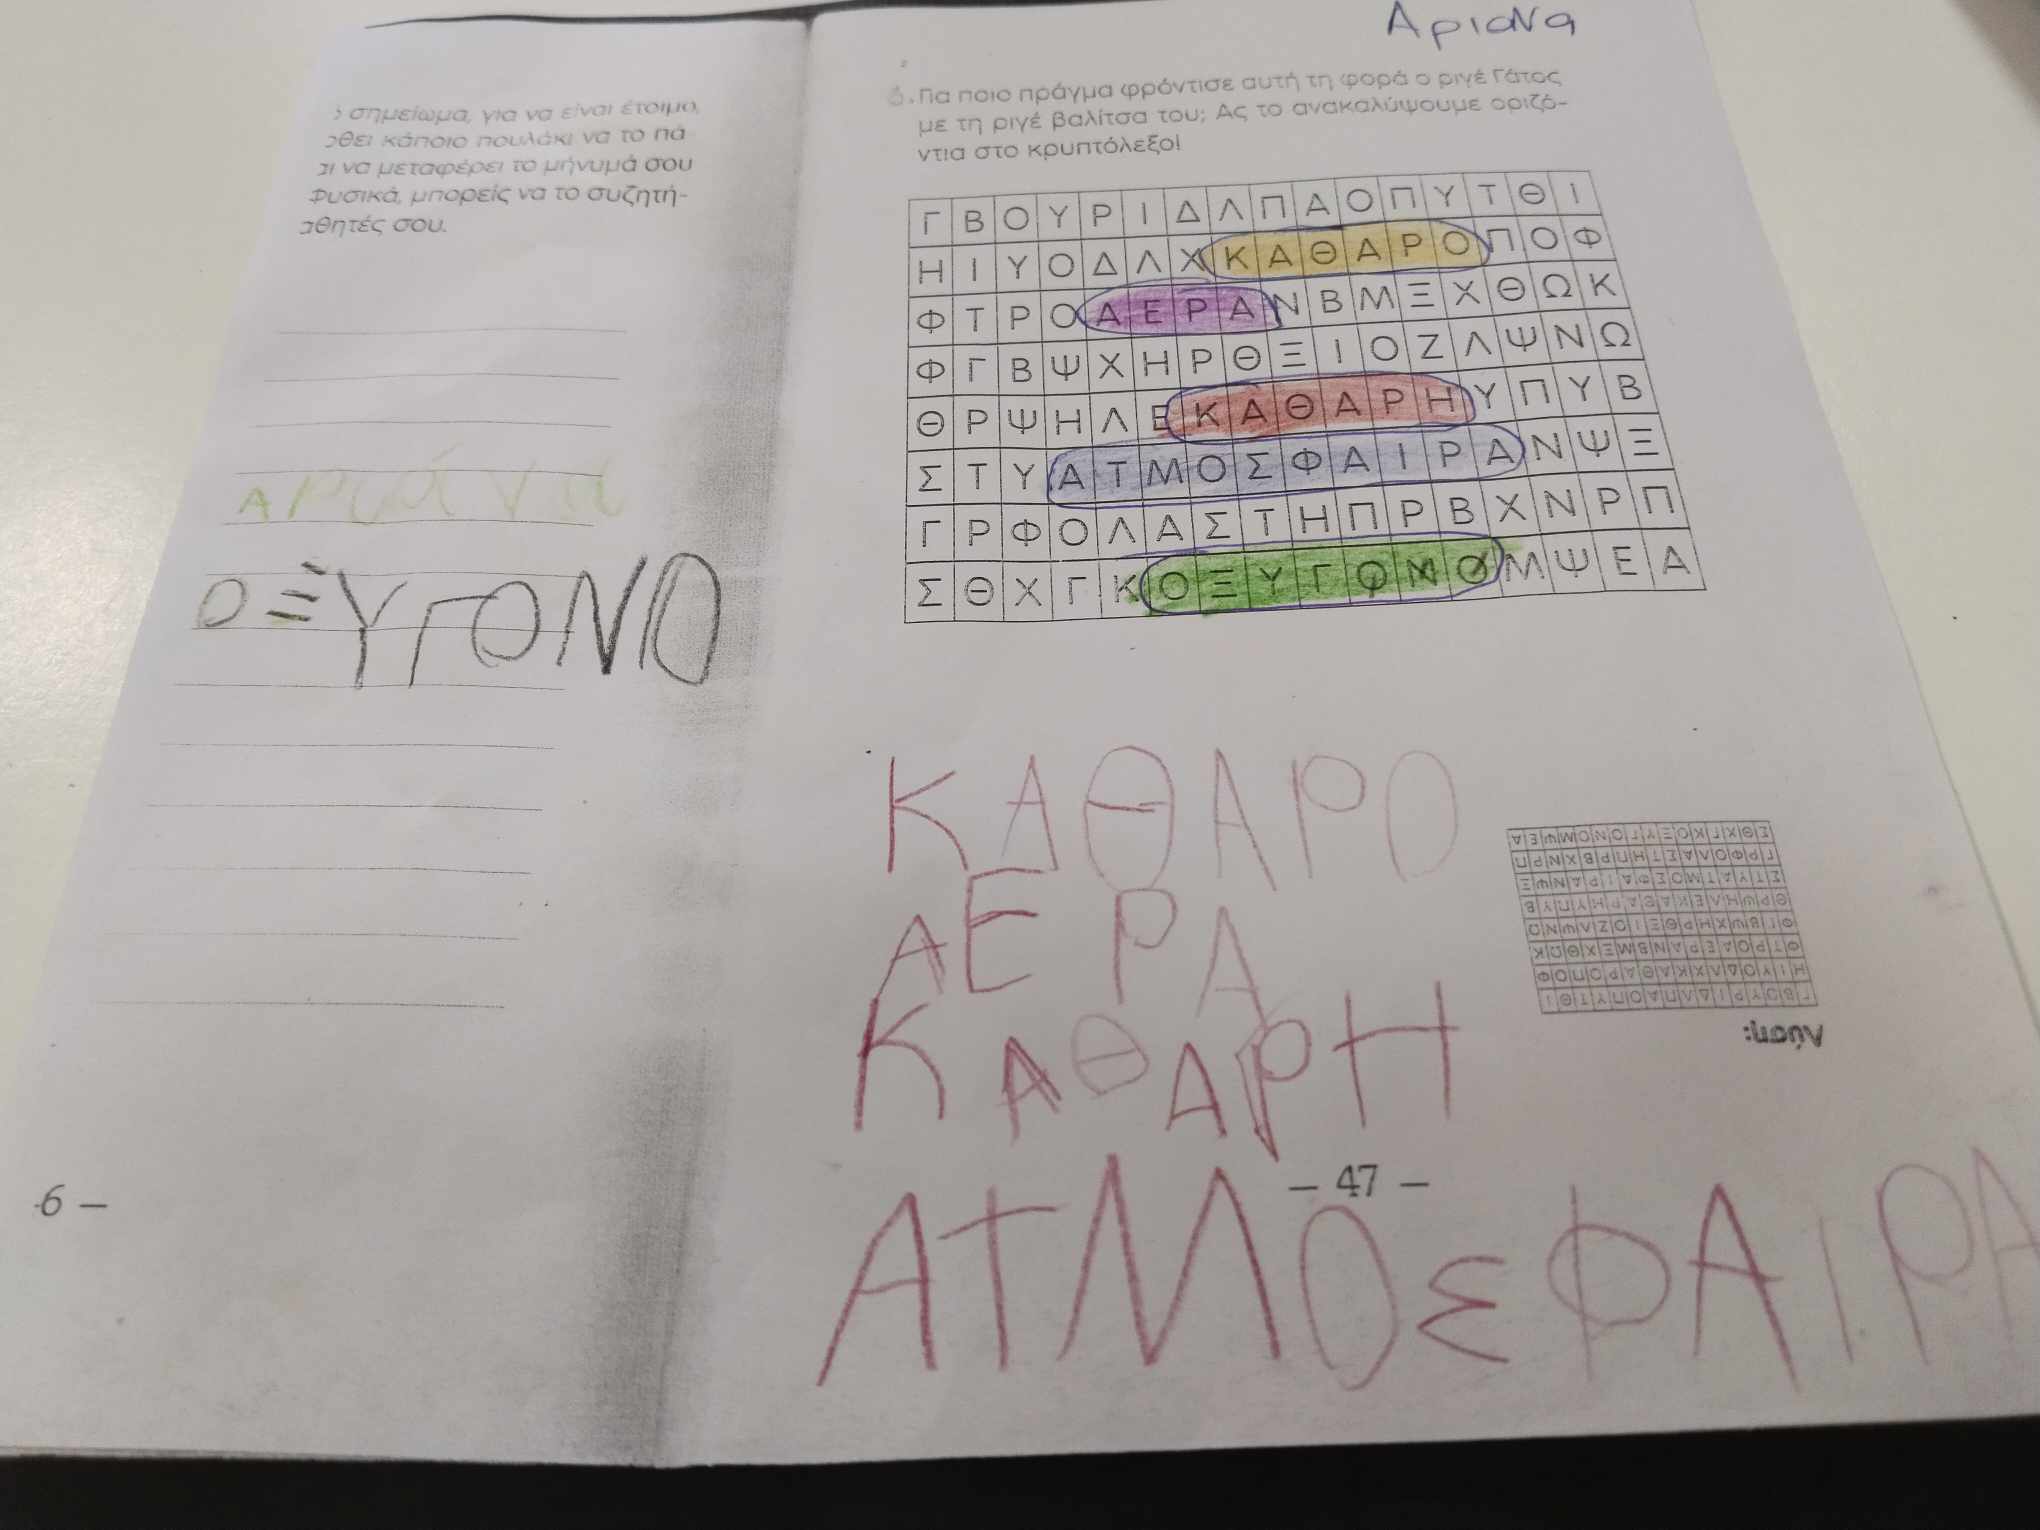 σημείωμα, για να είναι έτοιμο,
κάποιο πουλάκι να το πά
να μεταφέρει το μήνυμά σου
Φυσικά, μπορείς να το συζητή-
αθητές σου.
ΟΞΥΓΟΝΟ
6 –
Αριανα
6. Για ποιο πράγμα φρόντισε αυτή τη φορά ο ριγέ Γάτος
με τη ριγέ βαλίτσα του; Ας το ανακαλύψουμε οριζό-
ντια στο κρυπτόλεξο!
Γ Β Ο Υ Ρ Ι Δ Λ Π Α Ο Π Υ Τ Θ Ι
Η Ι Υ Ο Δ Λ Χ Κ Α Θ Α Ρ Ο Π Ο Φ
Φ Τ Ρ Ο Α Ε Ρ Α Ν Β Μ Ξ Χ Θ Ω Κ
Φ Γ Β Ψ Χ Η Ρ Θ Ξ Ι Ο Ζ Λ Ψ Ν Ω
Θ Ρ Ψ Η Λ Ε Κ Α Θ Α Ρ Η Υ Π Υ Β
Σ Τ Υ Α Τ Μ Ο Σ Φ Α Ι Ρ Α Ν Ψ Ξ
Γ Ρ Φ Ο Λ Α Σ Τ Η Π Ρ Β Χ Ν Ρ Π
Σ Θ Χ Γ Κ Ο Ξ Υ Γ Ο Ν Ο Μ Ψ Ε Α
ΚΑΘΑΡΟ
ΑΕΡΑ
ΚΑΘΑΡΗ
– 47 –
ΑΤΜΟΣΦΑΙΡΑ
Λύση:
Γ Β Ο Υ Ρ Ι Δ Λ Π Α Ο Π Υ Τ Θ Ι
Η Ι Υ Ο Δ Λ Χ Κ Α Θ Α Ρ Ο Π Ο Φ
Φ Τ Ρ Ο Α Ε Ρ Α Ν Β Μ Ξ Χ Θ Ω Κ
Φ Γ Β Ψ Χ Η Ρ Θ Ξ Ι Ο Ζ Λ Ψ Ν Ω
Θ Ρ Ψ Η Λ Ε Κ Α Θ Α Ρ Η Υ Π Υ Β
Σ Τ Υ Α Τ Μ Ο Σ Φ Α Ι Ρ Α Ν Ψ Ξ
Γ Ρ Φ Ο Λ Α Σ Τ Η Π Ρ Β Χ Ν Ρ Π
Σ Θ Χ Γ Κ Ο Ξ Υ Γ Ο Ν Ο Μ Ψ Ε Α